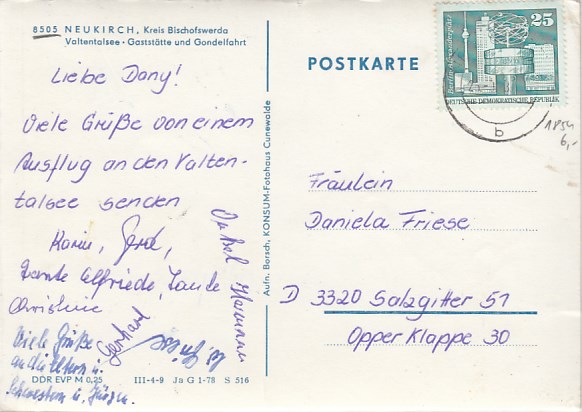 8505 NEUKIRCH, Kreis Bischofswerda
Valtentalsee · Gaststätte und Gondelfahrt
Liebe Dany!
Viele Grüße von einem
Ausflug an den Valten-
talsee senden
Karin, Gerd,
Tante Elfriede, Tante
Christine
Onkel Hermann
Gerhard
Viele Grüße
an die Eltern u.
Schwestern u. Jürgen.
DDR EVP M 0,25 III-4-9 Ja G 1-78 S 516
Aufn. Borsch, KONSUM-Fotohaus Cunewalde
POSTKARTE
25
Berlin, Alexanderplatz
DEUTSCHE DEMOKRATISCHE REPUBLIK
b
1854
6,-
Fräulein
Daniela Friese
D 3320 Salzgitter 51
Opper Klappe 30